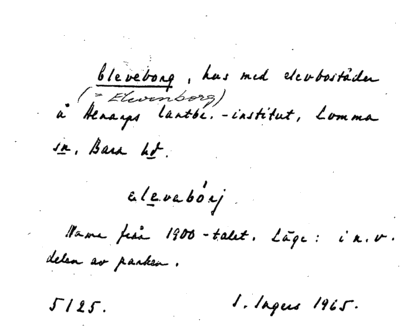 Eleveborg, hus med elevbostäder
(= Elevenborg)
å Alnarps lantbr.-institut, Lomma
sn, Bara hd.
elevabórj
Namn från 1900-talet. Läge: i n.v.
delen av parken.
5125. I. Ingers 1965.